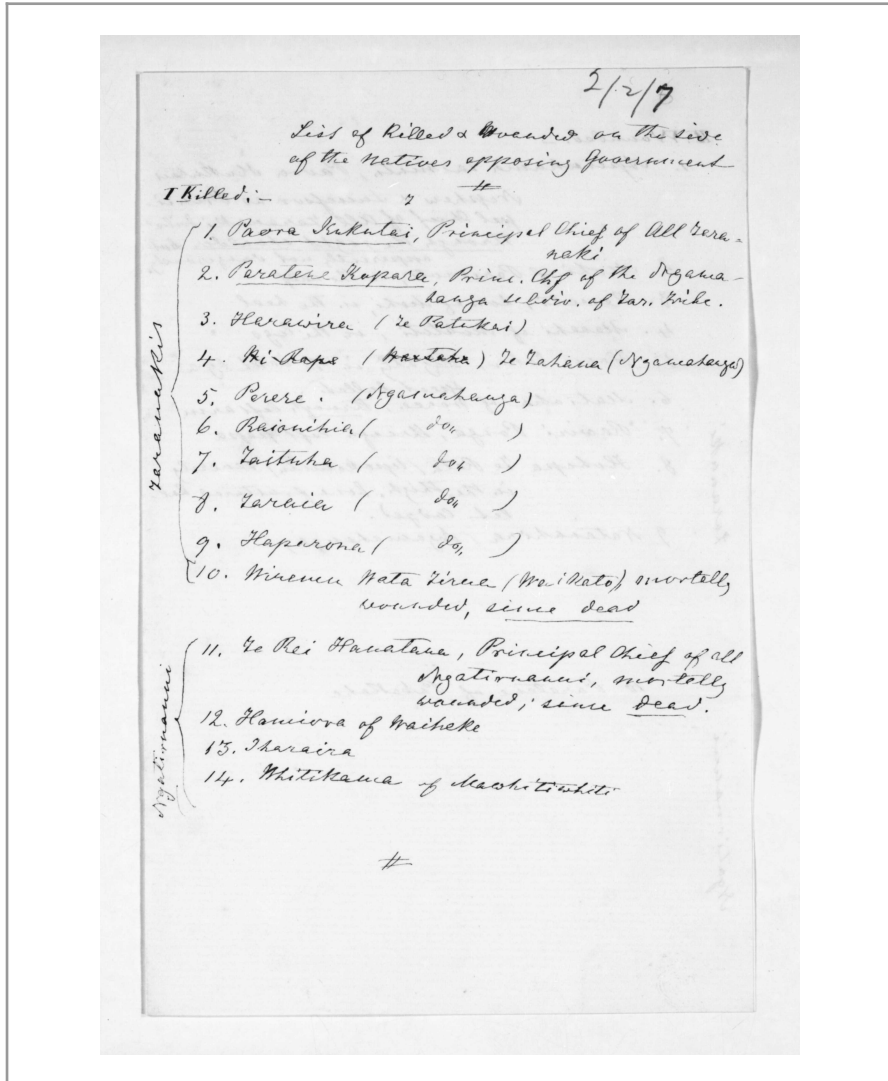 2/2/7
List of Killed & Wounded on the side
of the Natives opposing Government
I Killed:-
Taranakis
1. Paora Kukutai, Principal Chief of All Tara=
naki
2. Paratene Kopara, Princ. Chf of the Ngama-
hanga subdiv. of Tar. Tribe.
3. Harawira (Te Patukai)
4. Wi Rapa (Hartaka) Te Tahana (Ngamahanga)
5. Perere. (Ngamahanga)
6. Raionihia (do,,)
7. Taituha (do,,)
8. Taraia (do,,)
9. Haparona (do,,)
10. Wiremu Wata Tirua (Waikato), mortally
wounded, since dead
Ngatiruanui
11. Te Rei Hanataua, Principal Chief of all
Ngatiruanui, mortally
wounded; since dead.
12. Hamiora of Waiheke
13. Iharaira
14. Whitikama of Mawhitiwhiti